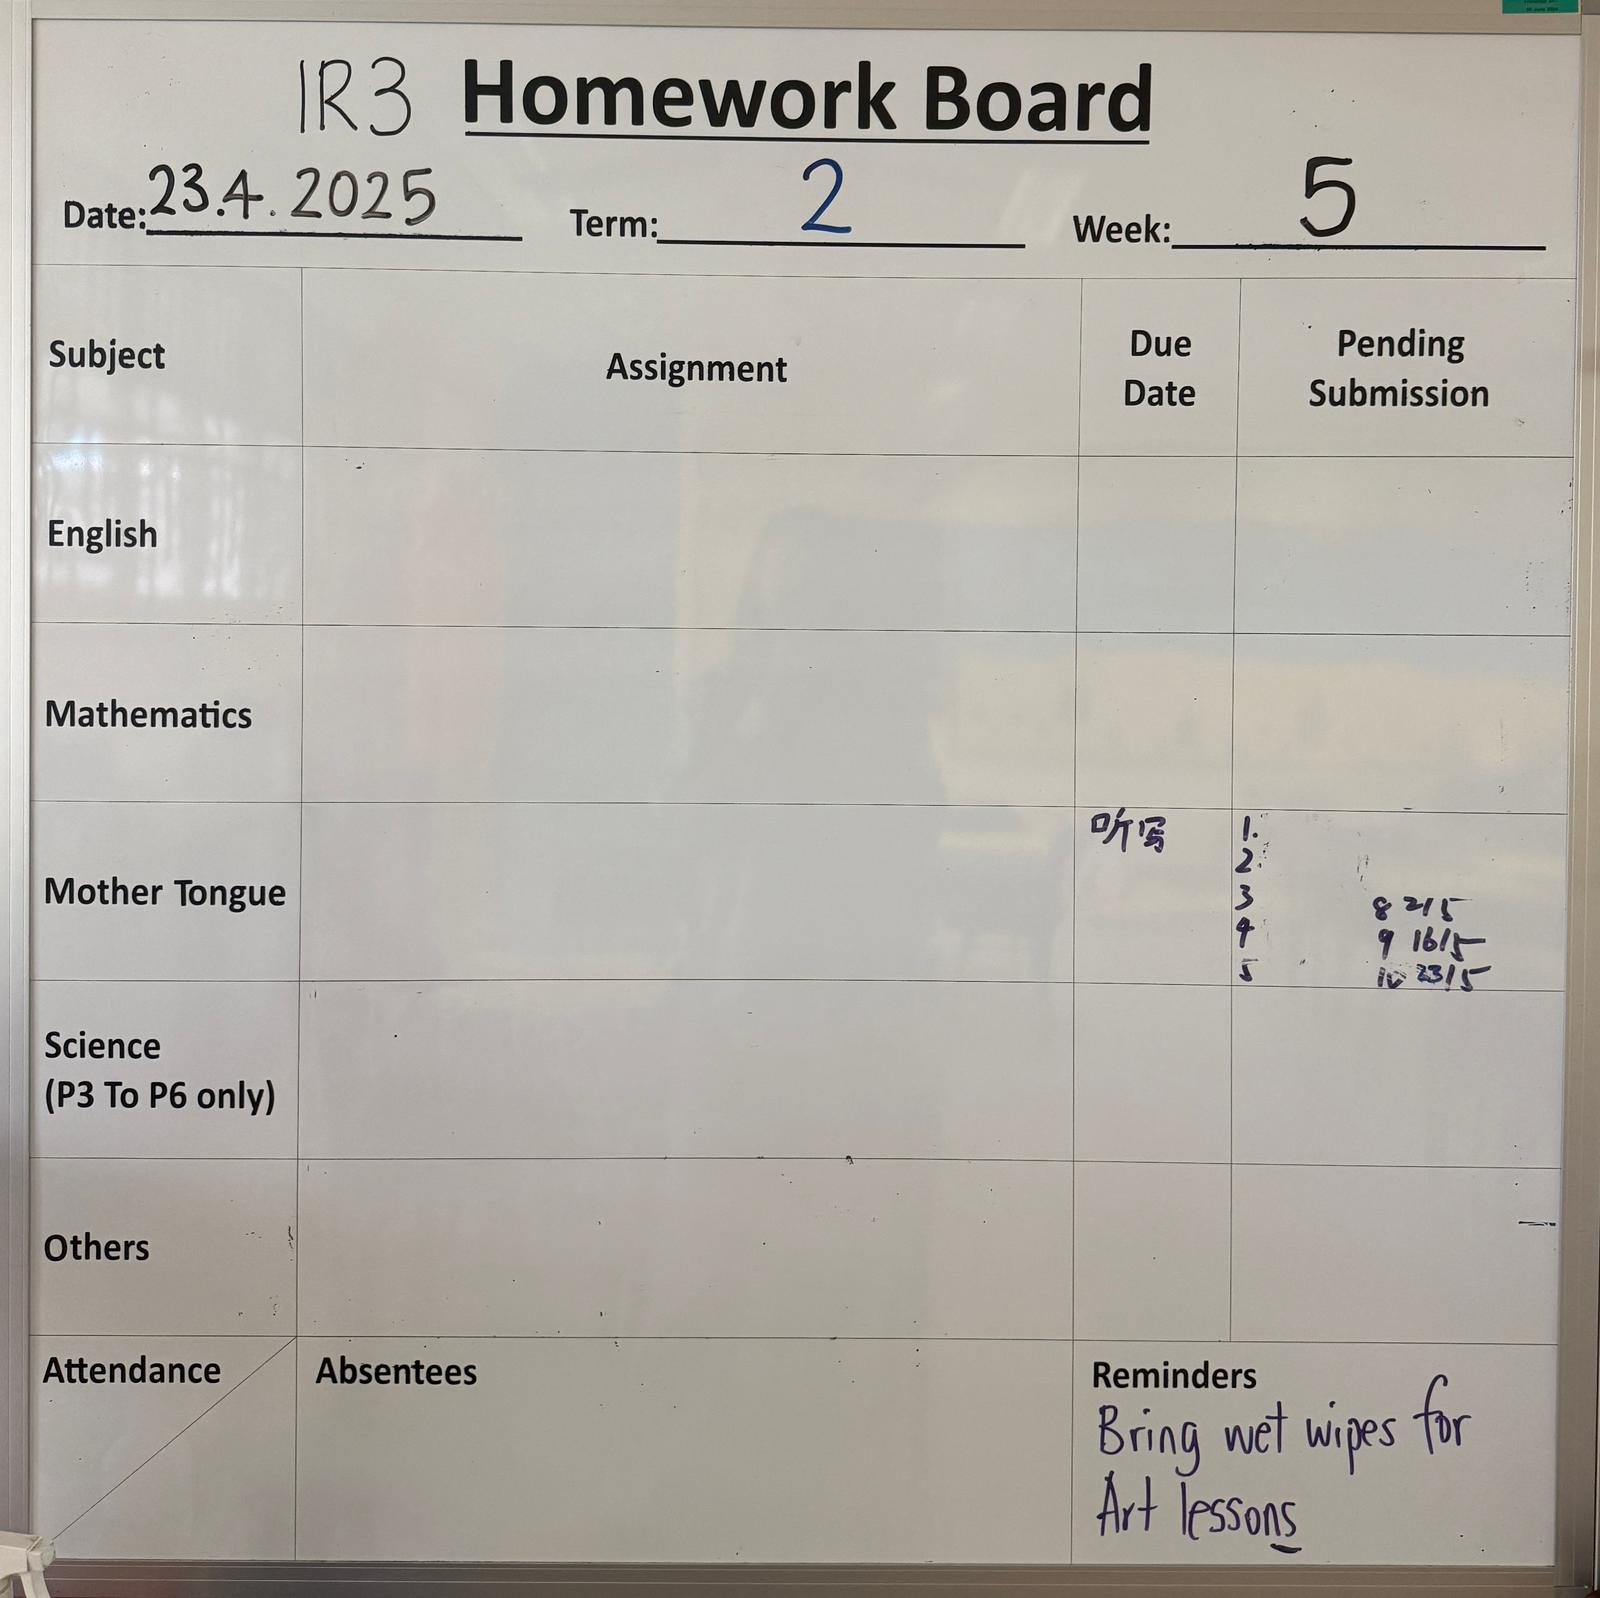 1R3 Homework Board
Date: 23.4.2025 Term: 2 Week: 5
Subject Assignment Due Date Pending Submission
English
Mathematics
Mother Tongue 听写 1.
2.
3 8 2/5
4 9 16/5
5 10 23/5
Science
(P3 To P6 only)
Others
Attendance Absentees Reminders
Bring wet wipes for
Art lessons